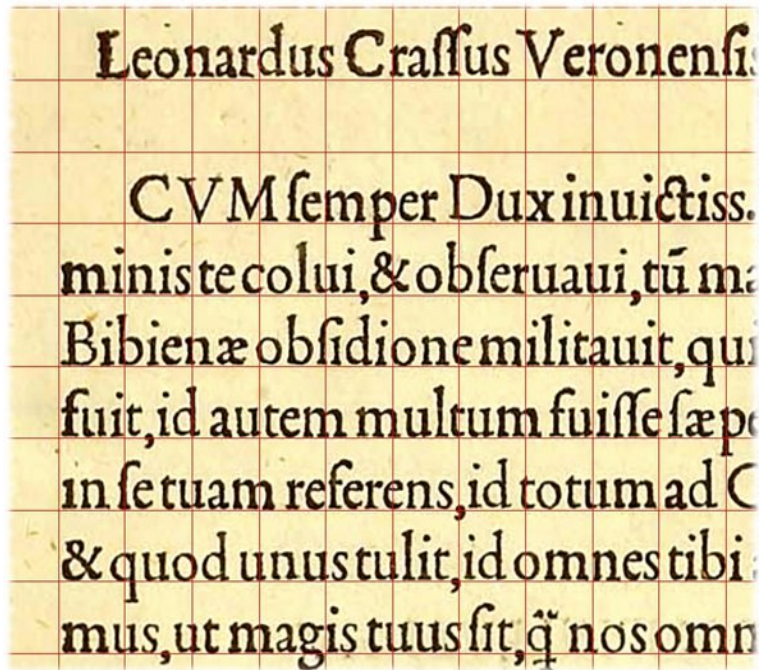 Leonardus Craſſus Veronenſis
CVM ſemper Dux inuictiss.
minis te colui,& obſeruaui,tū
Bibienæ obſidione militauit,
fuit,id autem multum fuiſſe ſæpe
in ſe tuam referens,id totum ad
& quod unus tulit,id omnes tibi
mus,ut magis tuus ſit,q̃ nos